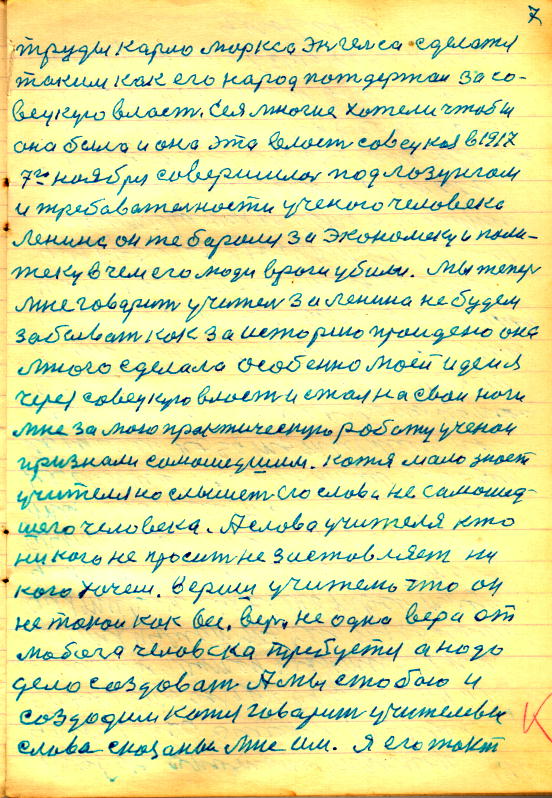 7
труды Карло Маркса Энгелса сделали
таким как его народ потдержал за со-
вецкую власт. Сея многие хотели чтоби
она била и она эта власт совецкая в 1917
7го ноября совершилас под лозунгом
и требавателности ученого человека
Ленина он те баролис за Экономеку и поли-
теку в чем его люди враги убили. Мы тепер
мне говарит учител за Ленина не будем
забыват как за историю пройдено она
много сделала особенно моей идеия
через совецкую власт и стал на свои ноги
мне за мою практическую работу ученои
признали самошедшим. Котя мало знает
учителя но слышет его слова не самошед-
шего человека. А слова учителя кто
никого не просит не заставляет ни
кого хочем. Верим учителю что он
не такои как вси, вери не одна вера от
любога человека требуется а надо
дело создоват А мы стобою и
создодим котя говарит учителеви
слова сказаные мне им. Я его такт
К